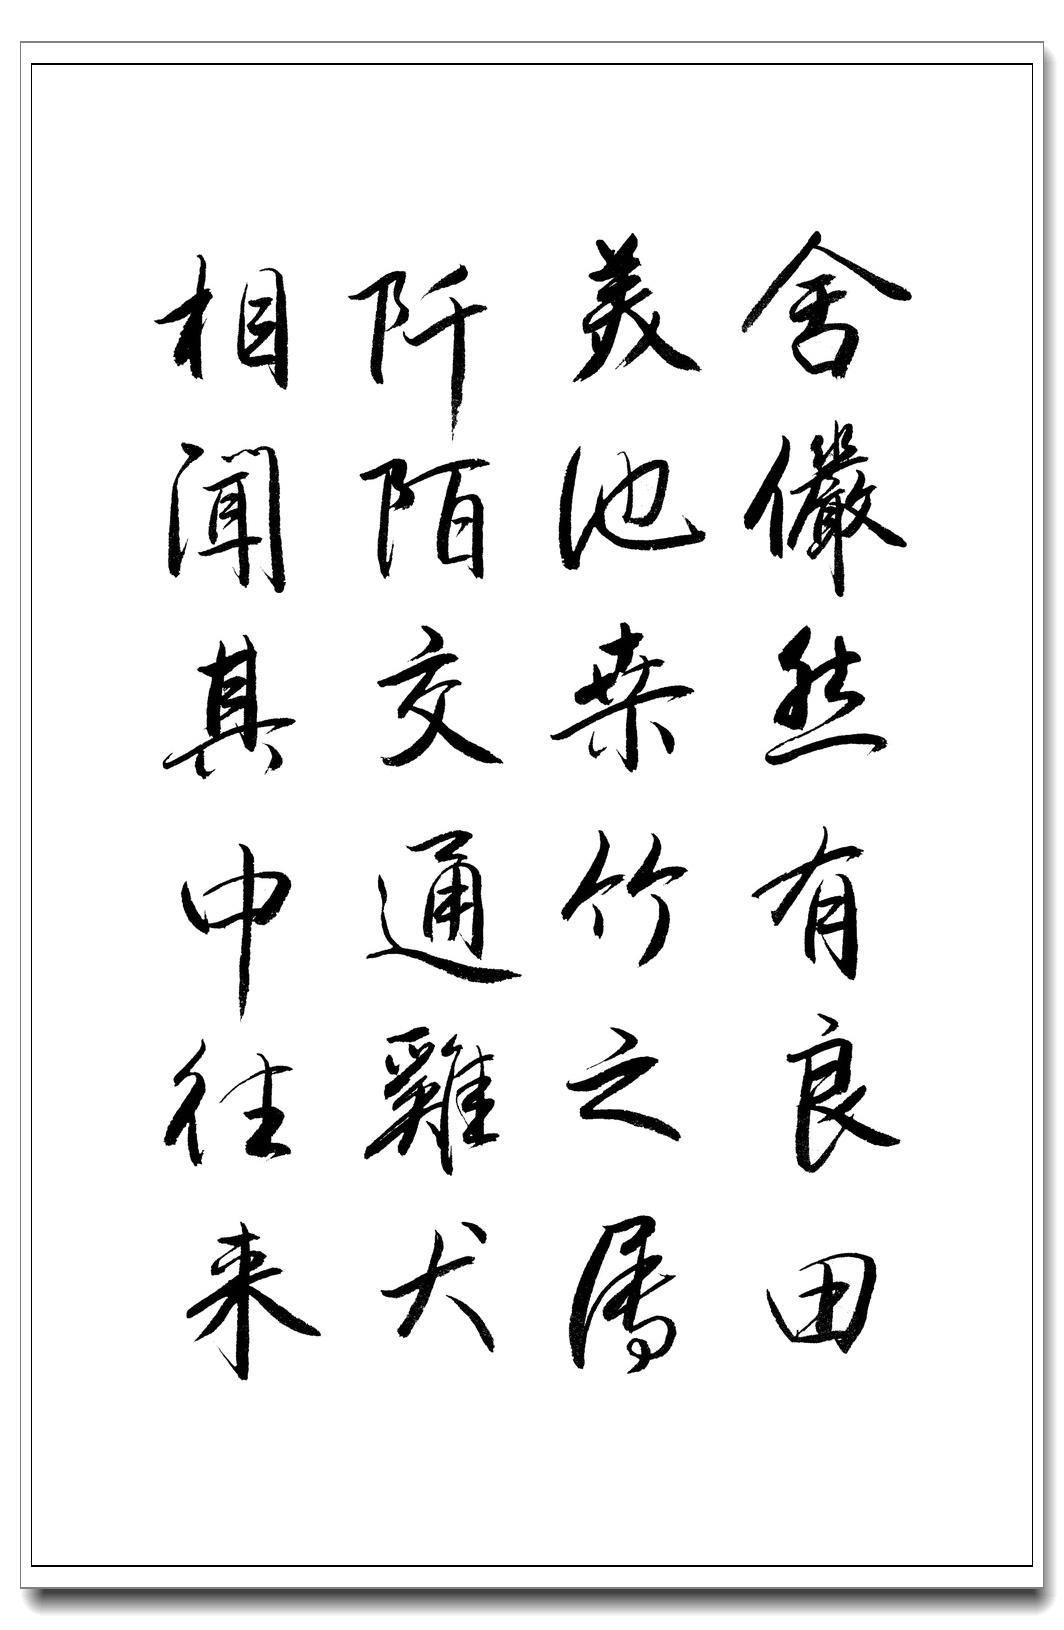 舍儼然有良田
美池桒竹之属
阡陌交通雞犬
相聞其中往来